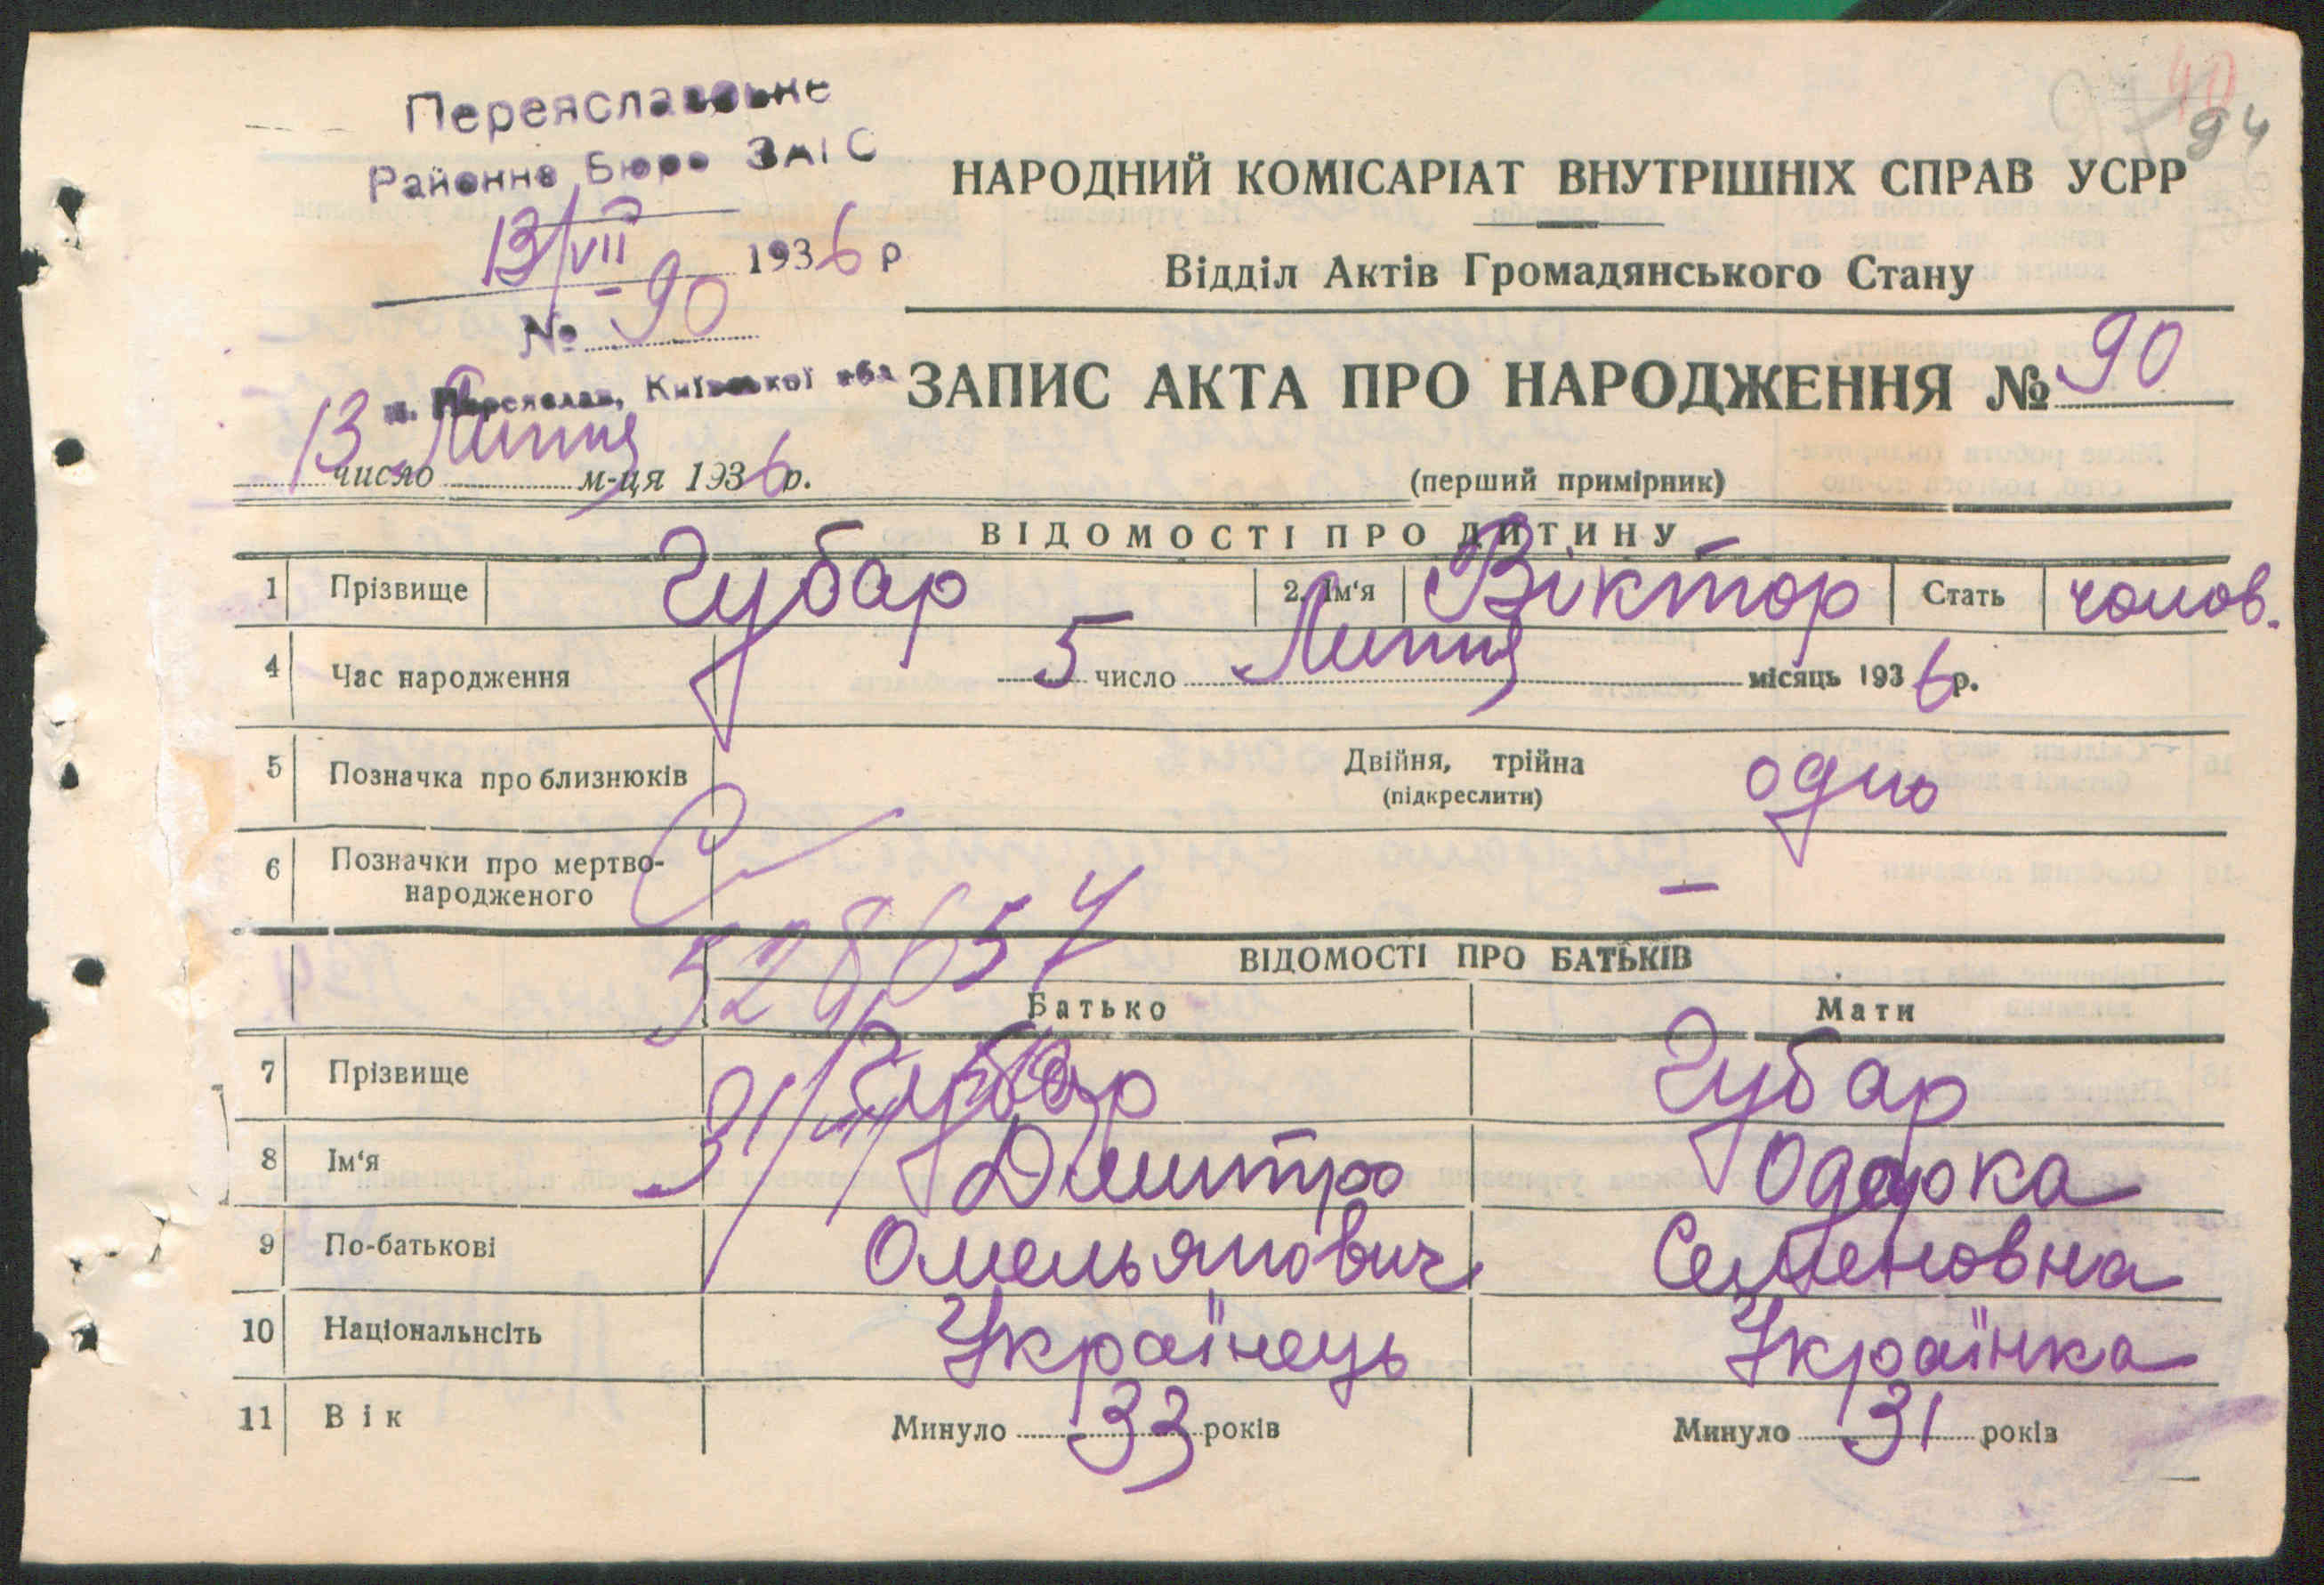 40
97
94
Переяславське
Районне Бюро ЗАГС
13/VII 1936 р
№ 90
м. Переяслав, Київської обл
НАРОДНИЙ КОМІСАРІАТ ВНУТРІШНІХ СПРАВ УСРР
Відділ Актів Громадянського Стану
ЗАПИС АКТА ПРО НАРОДЖЕННЯ № 90
13 число Липня м-ця 1936 р.
(перший примірник)
ВІДОМОСТІ ПРО ДИТИНУ
1 Прізвище Губар 2. Ім'я Віктор Стать чолов.
4 Час народження 5 число Липня місяць 1936 р.
5 Позначка про близнюків Двійня, трійна (підкреслити) одно
6 Позначки про мертво-
народженого —
528657
ВІДОМОСТІ ПРО БАТЬКІВ
Батько Мати
7 Прізвище Губар Губар
8 Ім'я Дмитро Одарка
9 По-батькові Омельянович Семеновна
10 Національнсіть Українець Українка
11 Вік Минуло 33 років Минуло 31 років